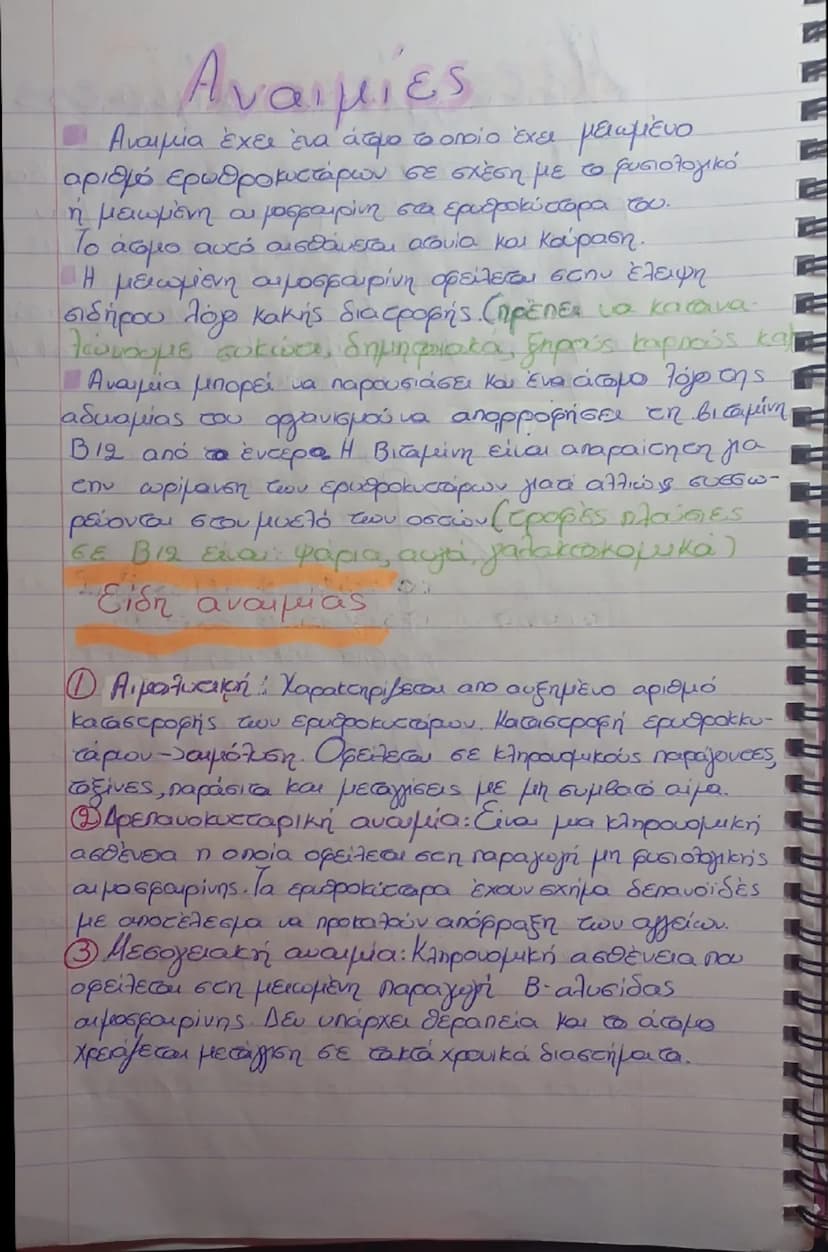 Αναιμίες
Αναιμία έχει ένα άτομο το οποίο έχει μειωμένο
αριθμό ερυθροκυττάρων σε σχέση με το φυσιολογικό
ή μειωμένη αιμοσφαιρίνη στα ερυθροκύτταρα του.
Το άτομο αυτό αισθάνεται ατονία και κούραση.
Η μειωμένη αιμοσφαιρίνη οφείλεται στην έλειψη
σιδήρου λόγο κακής διατροφής. (πρέπει να κατανα-
λώνουμε συκώτι, δημητριακα, ξηρούς καρπούς κα)
Αναιμία μπορεί να παρουσιάσει και ένα άτομο λόγο της
αδυναμίας του οργανισμού να απορροφήσει τη βιταμίνη
Β12 από το έντερο. Η Βιταμίνη είναι απαραίτητη για
την ωρίμανση των ερυθροκυττάρων γιατί αλλιώς συσσω-
ρεύονται στον μυελό των οστών (τροφές πλούσιες
σε Β12 είναι: ψάρια, αυγά, γαλακτοκομικά)
Είδη αναιμίας
① Αιμολυτική: Χαρακτηρίζεται απο αυξημένο αριθμό
καταστροφής των ερυθροκυττάρων. Καταστροφή ερυθροκυ-
τάρων -> αιμόλυση. Οφείλεται σε κληρονομικούς παράγοντες,
τοξίνες, παράσιτα και μεταγγίσεις με μη συμβατό αίμα.
② Δρεπανοκυτταρική αναιμία: Είναι μια κληρονομική
ασθένεια η οποία οφείλεται στη παραγωγή μη φυσιολογικής
αιμοσφαιρίνης. Τα ερυθροκύτταρα έχουν σχήμα δεπανοϊδές
με αποτέλεσμα να προκαλούν απόφραξη των αγγείων.
③ Μεσογειακή αναιμία: Κληρονομική ασθένεια που
οφείλεται στη μειωμένη παραγωγή Β-αλυσίδας
αιμοσφαιρίνης. Δεν υπάρχει θεραπεία και το άτομο
χρειάζεται μετάγγιση σε τακτά χρονικά διαστήματα.